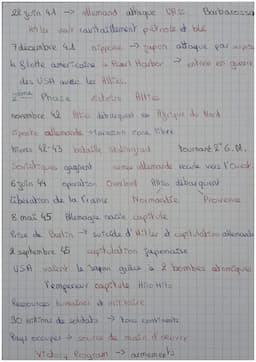 22 juin 41 → allemand attaque URSS. Barbarossa
Hitler voit ravitaillement pétrole et blé
7 décembre 41 → Japon attaque par surprise
la flotte américaine à Pearl Harbor → entrée en guerre
des USA avec les Alliés.
2ème Phase victoire Alliés
novembre 42 Alliés débarquent en Afrique du Nord
riposte allemande → invasion zone libre
hiver 42-43 bataille Stalingrad tournant 2e G.M.
Soviétiques gagnent armée allemande recule vers l'Ouest
6 juin 44 opération Overlord Alliés débarquent
libération de la France Normandie Provence
8 mai 45 Allemagne nazie capitule
Prise de Berlin → suicide d'Hitler et capitulation allemande
2 septembre 45 capitulation japonaise
USA le Japon grâce à 2 bombes atomiques
l'empereur capitule Hiro Hito
Ressources humaines et
90 millions de soldats → tous continents
Pays occupés → source de main d'œuvre
Victory Program → armements